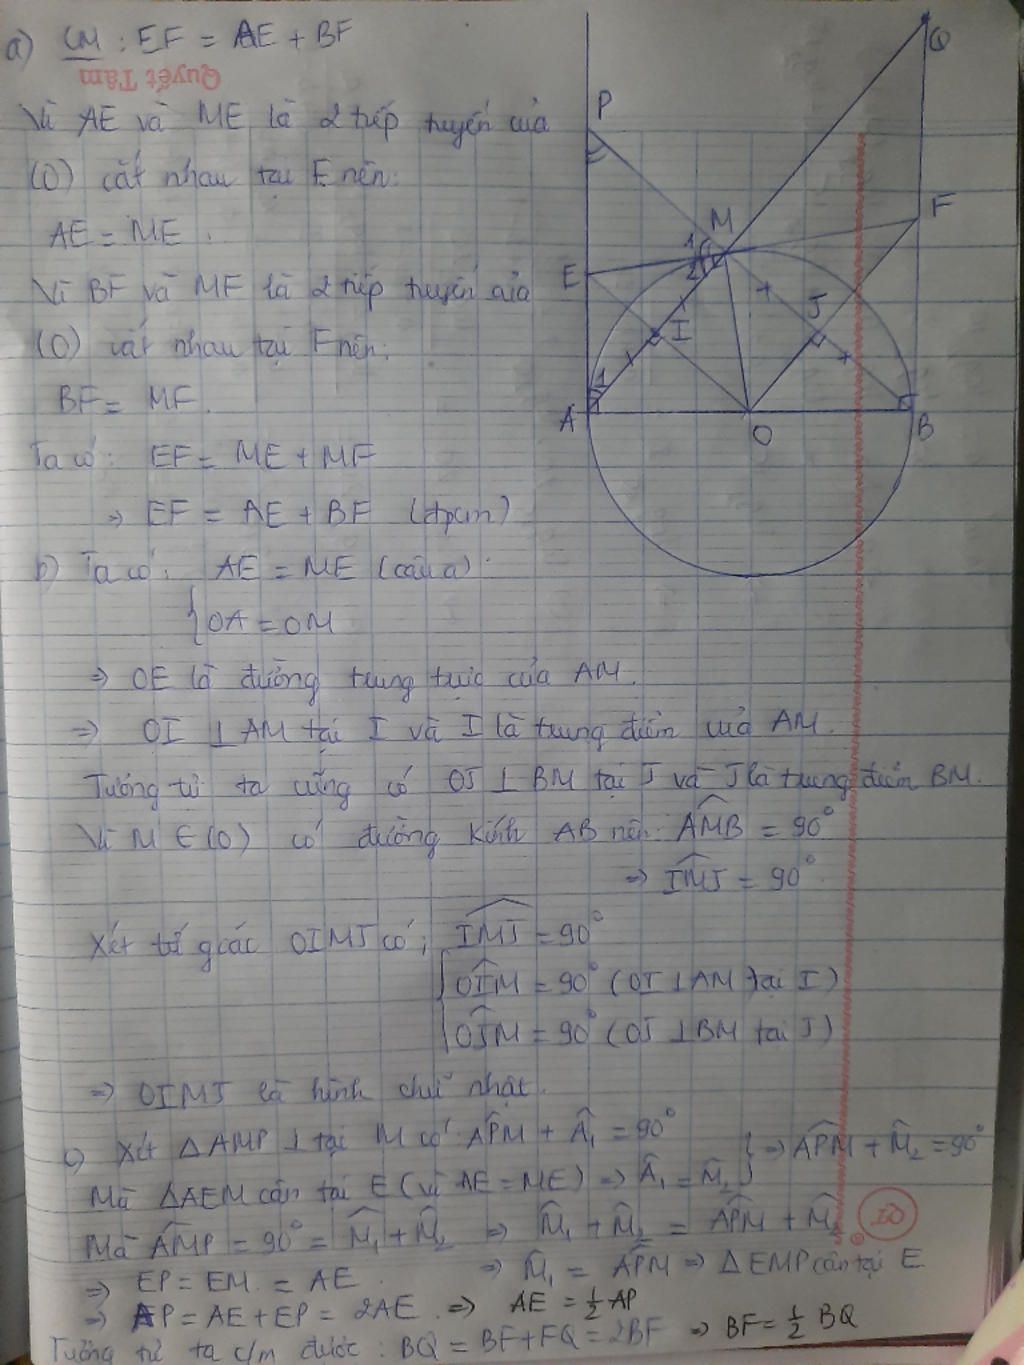 a) CM : EF = AE + BF
Quyết Tâm
Vì AE và ME là 2 tiếp tuyến của
(O) cắt nhau tại E nên:
AE = ME .
Vì BF và MF là 2 tiếp tuyến của
(O) cắt nhau tại F nên:
BF = MF.
Ta có: EF = ME + MF
⇒ EF = AE + BF (đpcm)
b) Ta có: AE = ME (câu a).
{OA = OM
⇒ OE là đường trung trực của AM.
⇒ OI ⊥ AM tại I và I là trung điểm của AM.
Tương tự ta cũng có OJ ⊥ BM tại J và J là trung điểm BM.
Vì M ∈ (O) có đường kính AB nên: \widehat{AMB} = 90°
⇒ \widehat{IMJ} = 90°.
Xét tứ giác OIMJ có: \widehat{IMJ} = 90°
\widehat{OIM} = 90° (OI ⊥ AM tại I)
\widehat{OJM} = 90° (OJ ⊥ BM tại J)
⇒ OIMJ là hình chữ nhật.
c) Xét ΔAMP ⊥ tại M có: \widehat{APM} + \widehat{A}₁ = 90°
Mà ΔAEM cân tại E (vì AE = ME) ⇒ \widehat{A}₁ = \widehat{M}₂ } ⇒ \widehat{APM} + \widehat{M}₂ = 90°
Mà \widehat{AMP} = 90° = \widehat{M}₁ + \widehat{M}₂ ⇒ \widehat{M}₁ + \widehat{M}₂ = \widehat{APM} + \widehat{M}₂
⇒ \widehat{M}₁ = \widehat{APM} ⇒ ΔEMP cân tại E.
⇒ EP = EM = AE .
⇒ AP = AE + EP = 2AE. ⇒ AE = ½ AP
Tương tự ta c/m được : BQ = BF + FQ = 2BF ⇒ BF = ½ BQ
Q
P
F
M
1
2
E
J
I
1
A
O
B